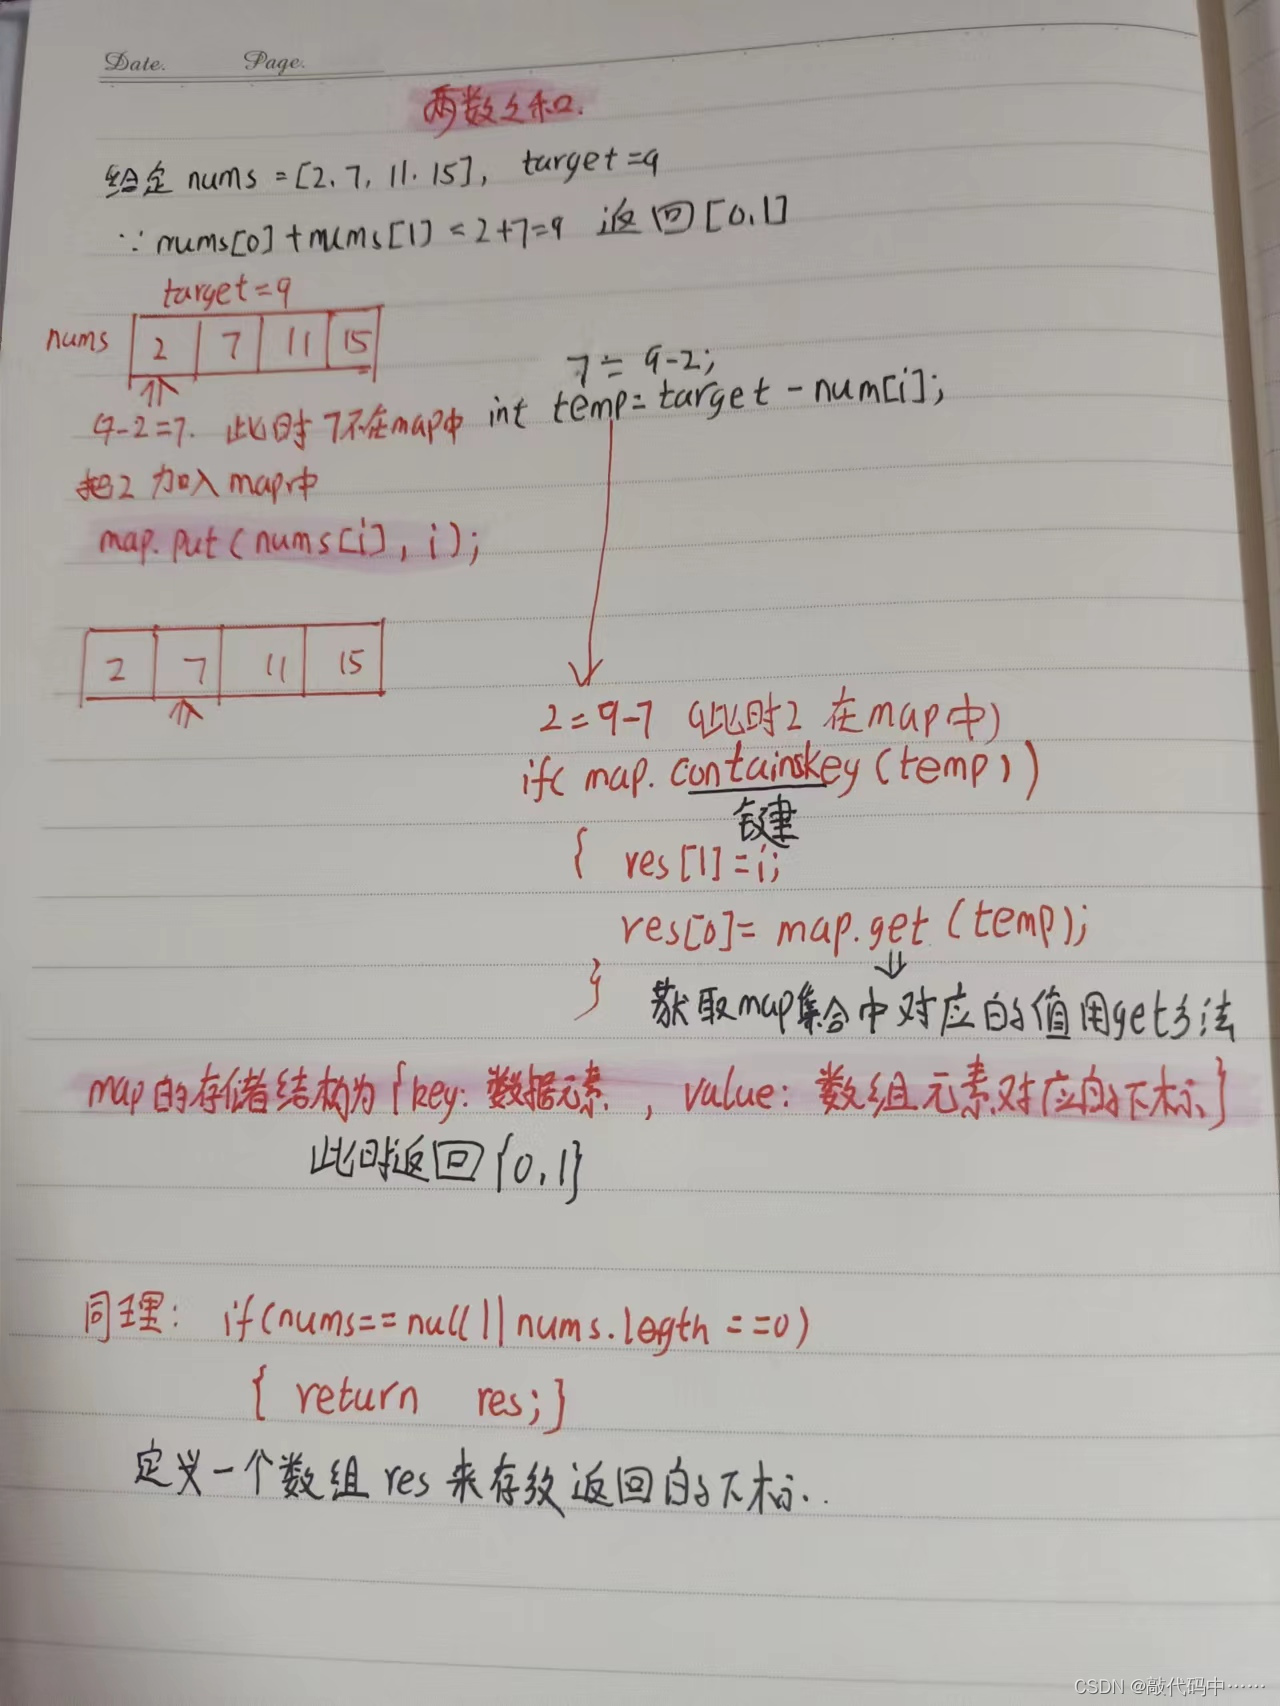 Date. Page.
两数之和.
给定 nums = [2, 7, 11, 15], target = 9
∵ nums[0] + nums[1] = 2+7=9 返回 [0,1]
target = 9
nums 2 7 11 15
7 = 9-2;
int temp = target - num[i];
9-2=7. 此时7不在map中
把2加入map中
map.put(nums[i], i);
2 7 11 15
2 = 9-7 (此时2 在map中)
if( map.containskey(temp))
键
{ res[1] = i;
res[0] = map.get(temp);
}
获取map集合中对应的值用get方法
map的存储结构为{key: 数据元素, value: 数组元素对应的下标}
此时返回{0,1}
同理: if(nums==null||nums.legth==0)
{ return res;}
定义一个数组res来存放返回的下标.
CSDN @敲代码中……